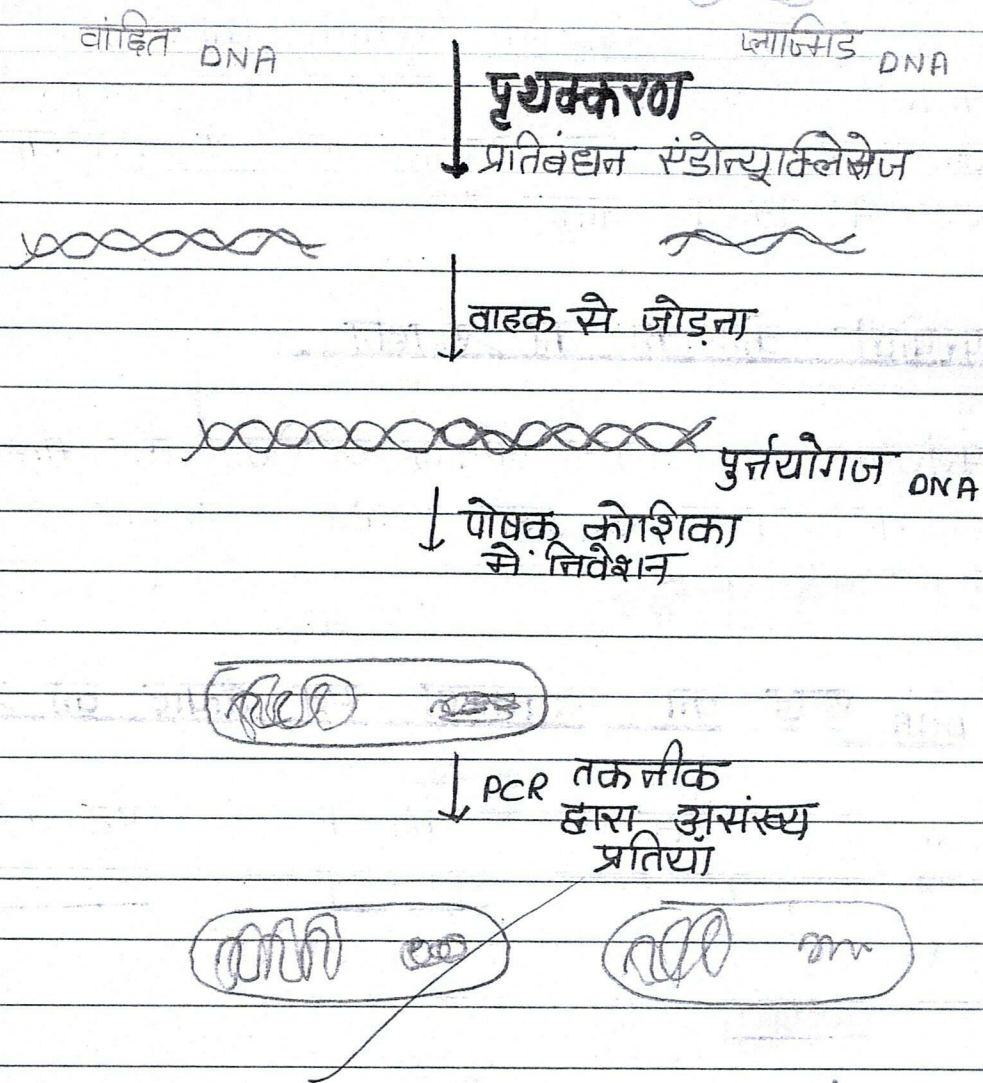 वांछित DNA
प्लाज्मिड DNA
पृथक्करण
प्रतिबंधन एंडोन्यूक्लिसेज
वाहक से जोड़ना
पुर्नयोगज DNA
पोषक कोशिका
में निवेशन
PCR तकनीक
द्वारा असंख्य
प्रतियाँ